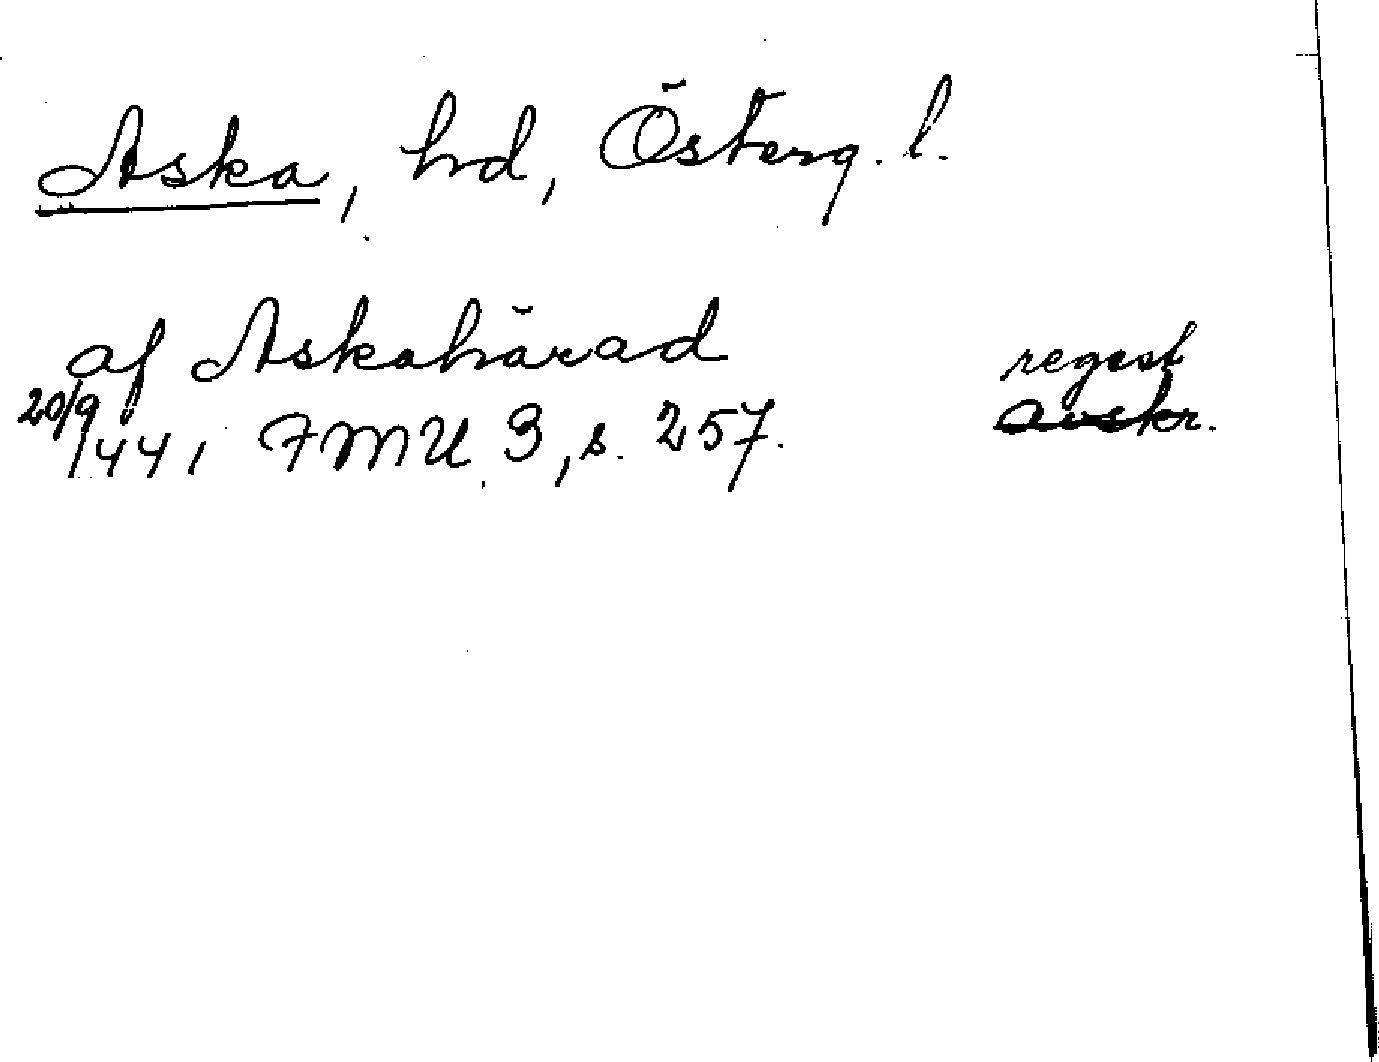 Aska, hd, Österg. l.
af Askahärad
regest
20/9 1441, FMU 3, s. 257.
avskr.